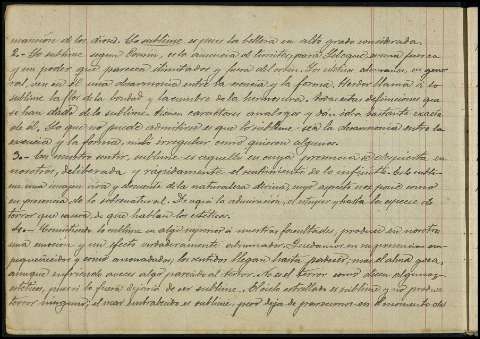 mansión de los dioses. Lo sublime es pues la belleza en alto grado considerada.
2.- Lo sublime segun Cousin, es la ausencia de límites; para Lévêque es una fuerza
y un poder que parecen ilimitados y fuera del orden. Los críticos alemanes, en gene-
ral, ven en él una desarmonía entre la esencia y la forma. Herder llama á lo
sublime la flor de la bondad y la cumbre de la hermosura. Todas estas definiciones que
se han dado de lo sublime tienen caracteres análogos y dan idea bastante exacta
de él. Lo que no puede admitirse es que lo sublime sea la desarmonía entre la
esencia y la forma, ni lo irregular como quieren algunos.
3.- En nuestro sentir, sublime es aquello en cuya presencia se despierta en
nosotros, deliberada y rápidamente el sentimiento de lo infinito. Es lo subli-
me una imagen viva y elocuente de la naturaleza divina, cuyo aspecto nos pone como
en presencia de lo sobrenatural. De aquí la admiración, el estupor y hasta la especie de
terror que causa, de que hablan los estéticos.
4.- Consistiendo lo sublime en algo superior á nuestras facultades, produce en nosotros
una emoción y un efecto verdaderamente abrumador. Quedamos en su presencia em-
pequeñecidos y como anonadados; los sentidos llegan hasta padecer, mas el alma goza,
aunque sufriendo á veces algo parecido al terror. No es el terror como dicen algunos
estéticos, pues si lo fuera dejaría de ser sublime. El cielo estrellado es sublime y no produce
terror ninguno; el mar embravecido es sublime, pero deja de parecernos en el momento de